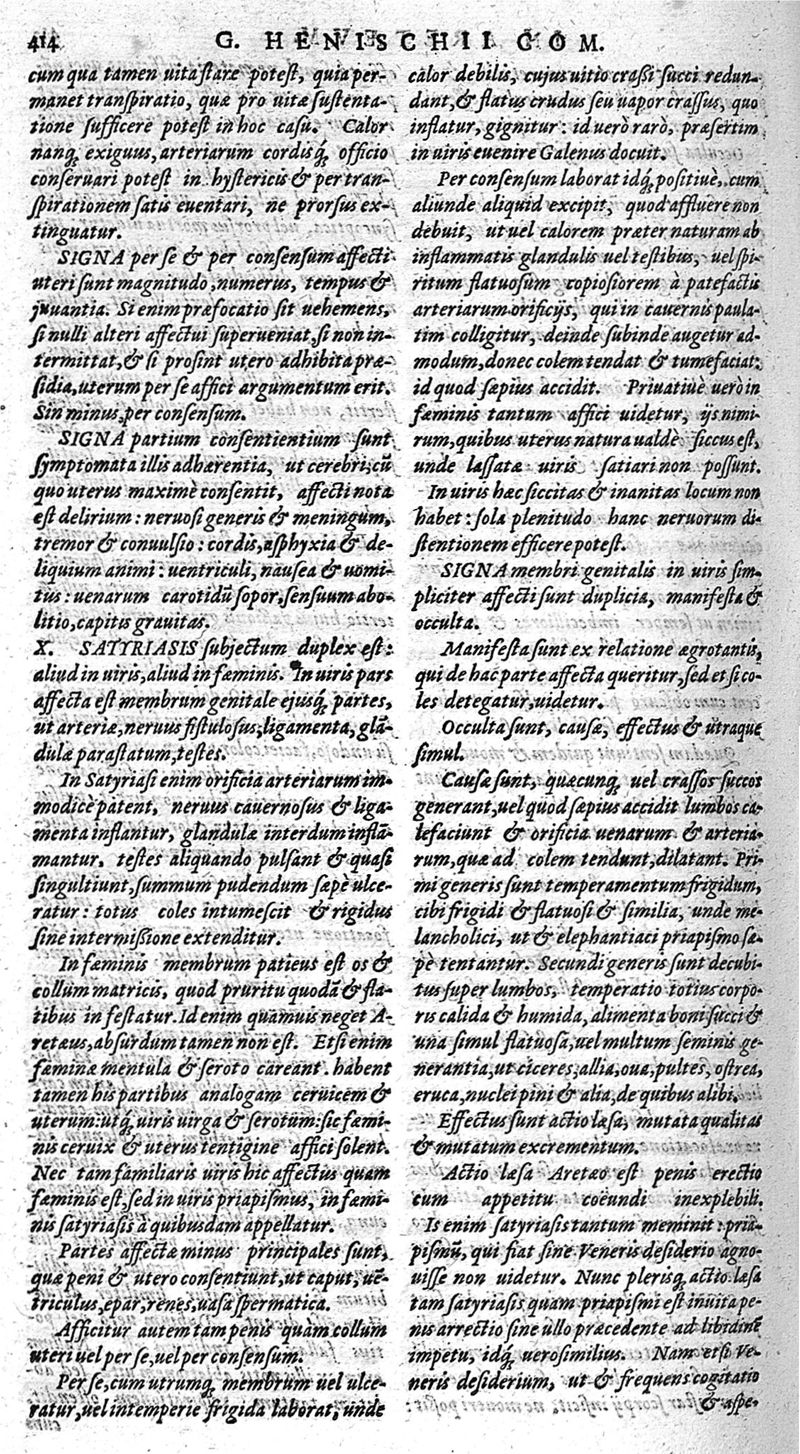 414 G. HENISCHII COM.
cum qua tamen uita stare potest, quia per-
manet transpiratio, quæ pro uitæ sustenta-
tione sufficere potest in hoc casu. Calor
nanq; exiguus, arteriarum cordisq́; officio
conseruari potest in hystericis & per tran-
spirationem satis euentari, ne prorsus ex-
tinguatur.
SIGNA per se & per consensum affecti
uteri sunt magnitudo, numerus, tempus &
juuantia. Si enim præfocatio sit uehemens,
si nulli alteri affectui superueniat, si non in-
termittat, & si prosint utero adhibita præ-
sidia, uterum per se affici argumentum erit.
Sin minus, per consensum.
SIGNA partium consentientium sunt
symptomata illis adhærentia, ut cerebri, cũ
quo uterus maximè consentit, affecti nota
est delirium: neruosi generis & meningum,
tremor & conuulsio: cordis, asphyxia & de-
liquium animi: uentriculi, nausea & uomi-
tus: uenarum carotidũ sopor, sensuum abo-
litio, capitis grauitas.
X. SATYRIASIS subjectum duplex est:
aliud in uiris, aliud in fæminis. In uiris pars
affecta est membrum genitale ejusq́; partes,
ut arteriæ, neruus fistulosus, ligamenta, glã-
dulæ parastatum, testes.
In Satyriasi enim orificia arteriarum im-
modicè patent, neruus cauernosus & liga-
menta inflantur, glandulæ interdum inflã-
mantur. testes aliquando pulsant & quasi
singultiunt, summum pudendum sæpè ulce-
ratur: totus coles intumescit & rigidus
sine intermissione extenditur.
In fæminis membrum patieus est os &
collum matricis, quod pruritu quodã & fla-
tibus infestatur. Id enim quamuis neget A-
retæus, absurdum tamen non est. Etsi enim
fæminæ mentula & scroto careant. habent
tamen his partibus analogam ceruicem &
uterum: utq́; uiris uirga & scrotum: sic fæmi-
nis ceruix & uterus tentigine affici solent.
Nec tam familiaris uiris hic affectus quam
fæminis est, sed in uiris priapismus, in fæmi-
nis satyriasis à quibusdam appellatur.
Partes affectæ minus principales sunt,
quæ peni & utero consentiunt, ut caput, uẽ-
triculus, epar, renes, uasa spermatica.
Afficitur autem tam penis quàm collum
uteri uel per se, uel per consensum.
Per se, cum utrumq; membrum uel ulce-
ratur, uel intemperie frigida laborat, unde
calor debilis, cujus uitio crassi succi redun-
dant, & flatus crudus seu uapor crassus, quo
inflatur, gignitur: id uerò rarò, præsertim
in uiris euenire Galenus docuit.
Per consensum laborat idq́; positiuè, cum
aliunde aliquid excipit, quod affluere non
debuit, ut uel calorem præter naturam ab
inflammatis glandulis uel testibus, uel spi-
ritum flatuosum copiosiorem à patefactis
arteriarum orificijs, qui in cauernis paula-
tim colligitur, deinde subinde augetur ad-
modum, donec colem tendat & tumefaciat:
id quod sæpius accidit. Priuatiuè uerò in
fæminis tantum affici uidetur, ijs nimi-
rum, quibus uterus natura ualdè siccus est,
unde lassatæ uiris satiari non possunt.
In uiris hæc siccitas & inanitas locum non
habet: sola plenitudo hanc neruorum di-
stentionem efficere potest.
SIGNA membri genitalis in uiris sim-
pliciter affecti sunt duplicia, manifesta &
occulta.
Manifesta sunt ex relatione ægrotantis,
qui de hac parte affecta queritur, sed et si co-
les detegatur, uidetur.
Occulta sunt, causæ, effectus & utraque
simul.
Causæ sunt, quæcunq; uel crassos succos
generant, uel quod sæpius accidit lumbos ca-
lefaciunt & orificia uenarum & arteria-
rum, quæ ad colem tendunt, dilatant. Pri-
mi generis sunt temperamentum frigidum,
cibi frigidi & flatuosi & similia, unde me-
lancholici, ut & elephantiaci priapismo sæ-
pè tentantur. Secundi generis sunt decubi-
tus super lumbos, temperatio totius corpo-
ris calida & humida, alimenta boni succi &
una simul flatuosa, uel multum seminis ge-
nerantia, ut ciceres, allia, oua, pultes, ostrea,
eruca, nuclei pini & alia, de quibus alibi.
Effectus sunt actio læsa, mutata qualitas
& mutatum excrementum.
Actio læsa Aretæo est penis erectio
cum appetitu coëundi inexplebili.
Is enim satyriasis tantum meminit: pria-
pismũ, qui fiat sine Veneris desiderio agno-
uisse non uidetur. Nunc plerisq; actio læsa
tam satyriasis quam priapismi est inuita pe-
nis arrectio sine ullo præcedente ad libidinẽ
impetu, idq́; uerosimilius. Nam etsi Ve-
neris desiderium, ut & frequens cogitatio
& aspe-